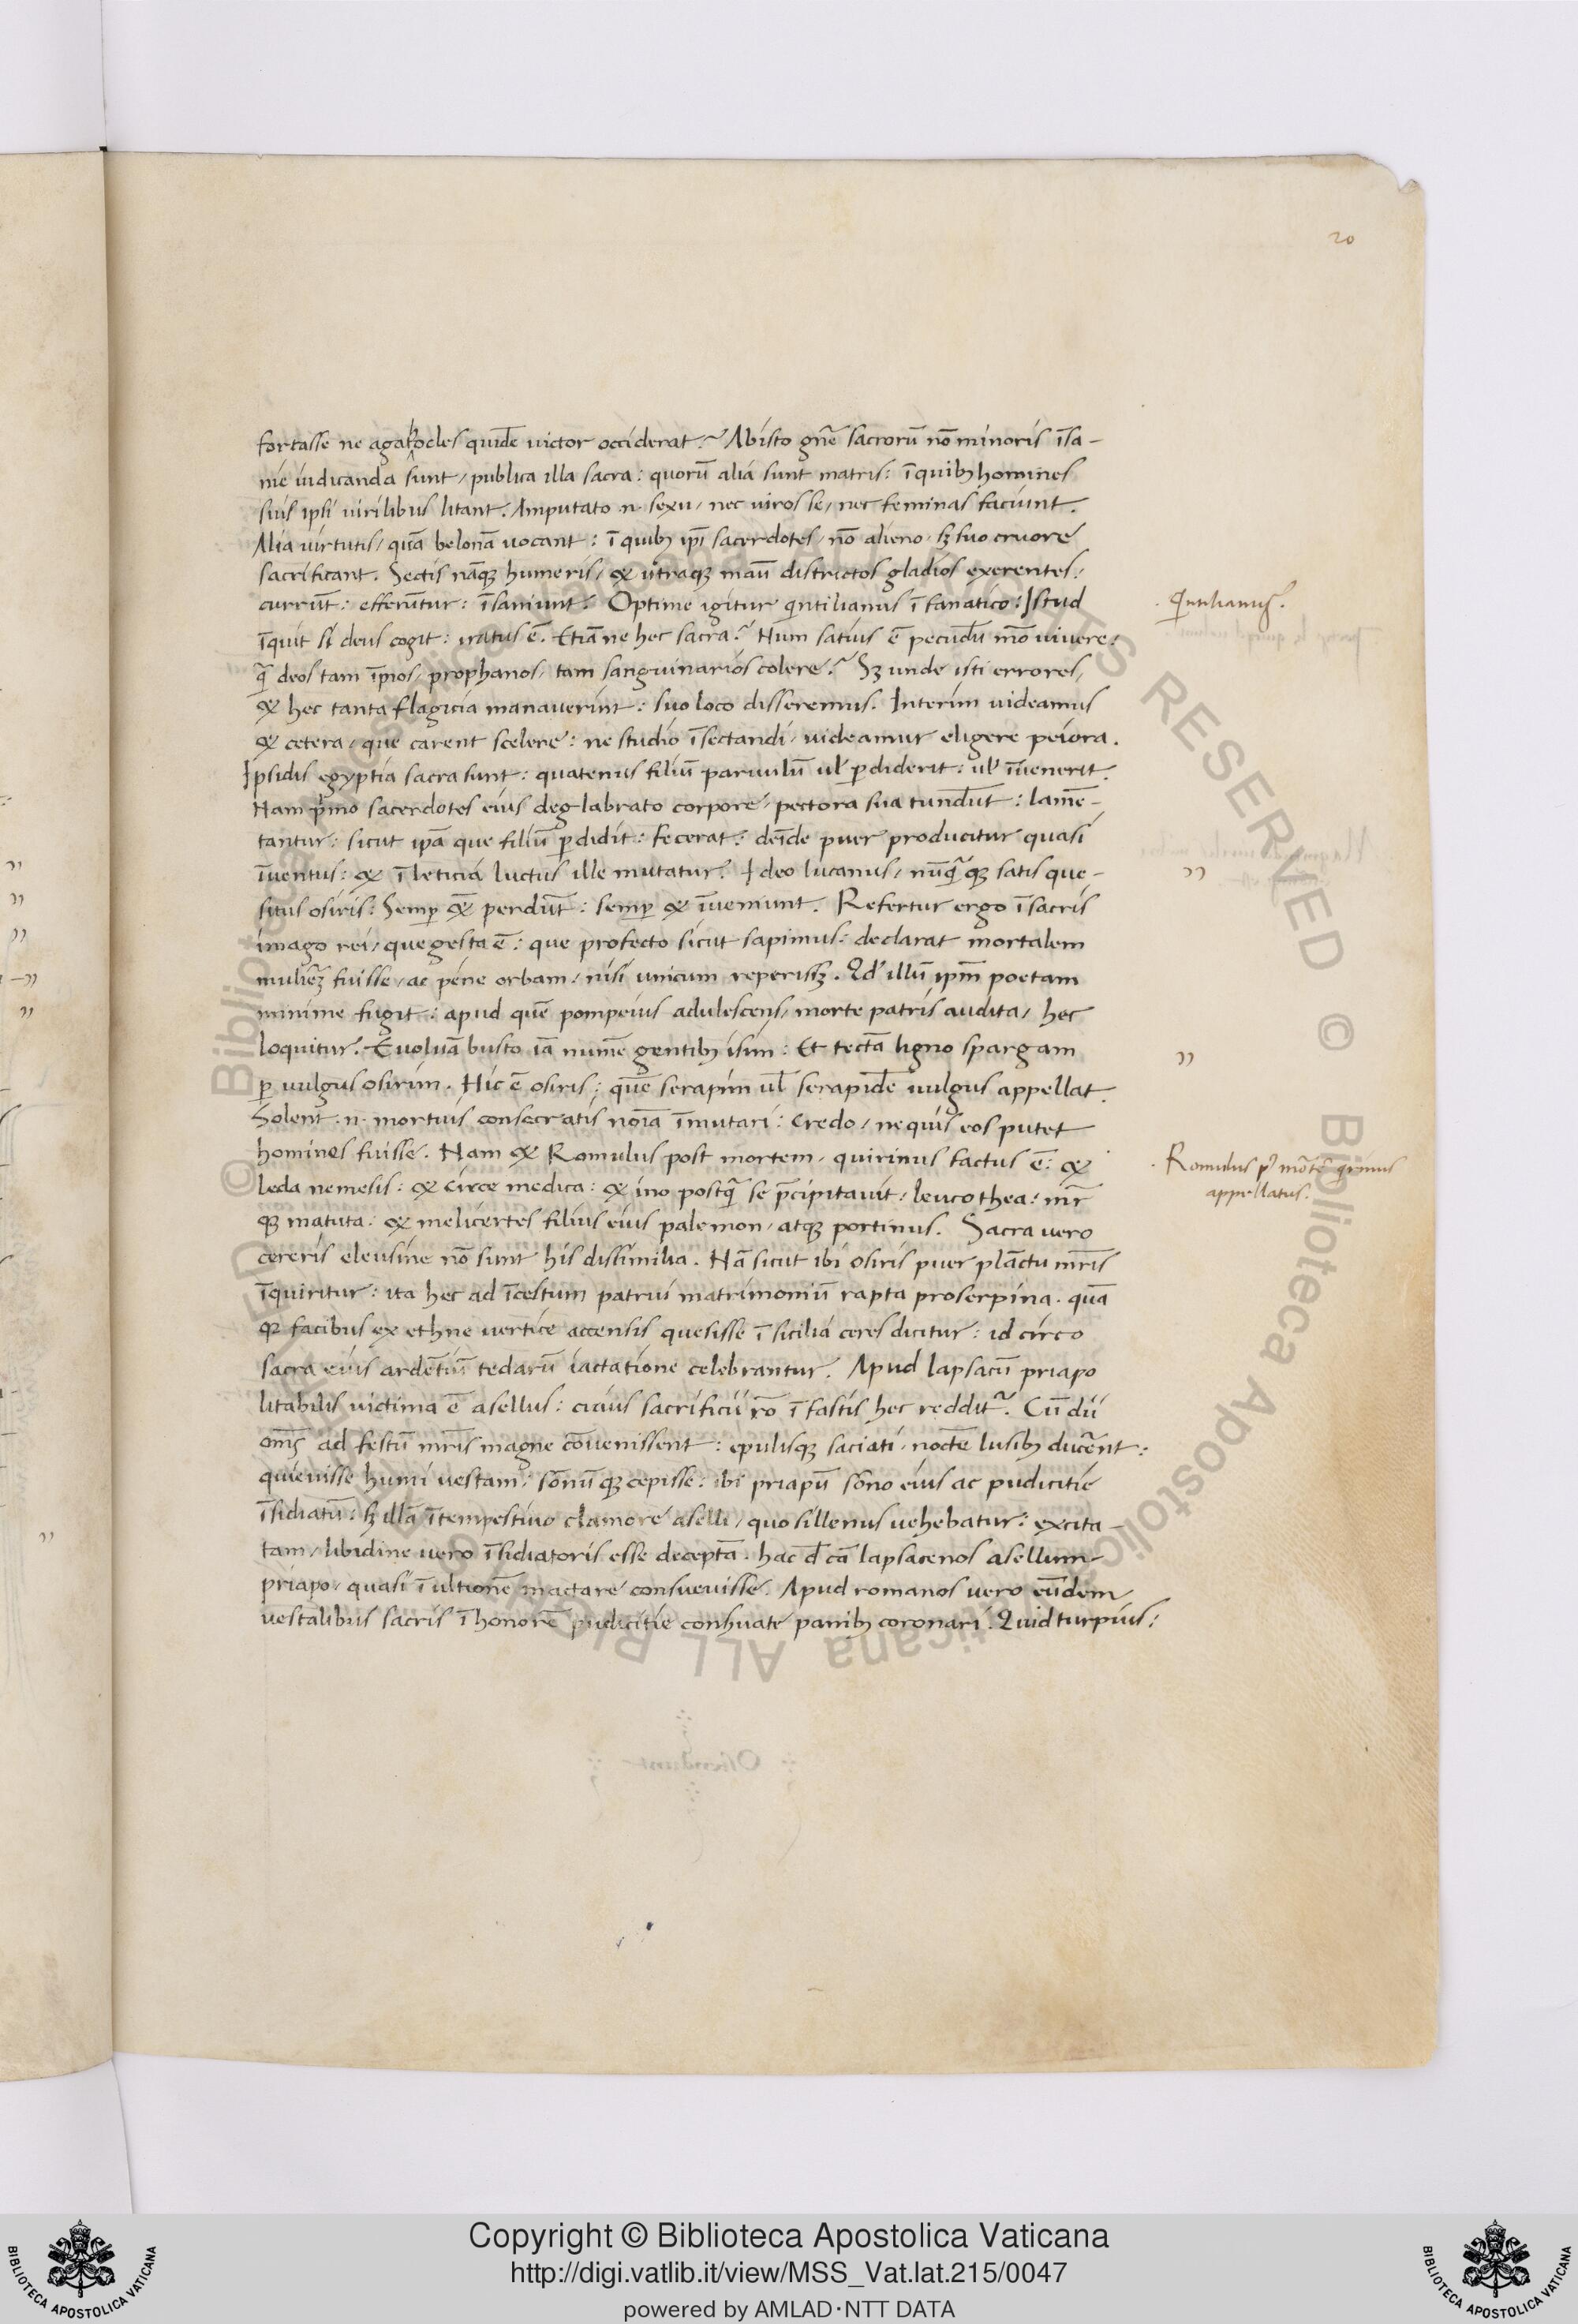 20
fortasse ne agathocles quidē victor occiderat? Ab isto gn̄e sacrorū nō minoris īsa-
nie iudicanda sunt, publica illa sacra: quorū alia sunt matris: ī quibꝫ homines
suis ipsi virilibus litant. Amputato .n. sexu, nec viros se, nec feminas faciunt.
Alia virtutis, quā belonā vocant: ī quibꝫ ipī sacerdotes, nō alieno, sꝫ suo cruore
sacrificant. Sectis nāqꝫ humeris, & utraqꝫ manū districtos gladios exerentes,
currūt: efferūtur: īsaniunt. Optime igitur qintilianus ī fanatico: Istud
īquit si deus cogit: iratus ē. Etiā ne hec sacra? Num satius ē pecudū mō vivere:
q̄ deos tam īpios, prophanos, tam sanguinarios colere? Sꝫ unde isti errores,
& hec tanta flagicia manaverint: suo loco disseremus. Interim videamus
& cetera, que carent scelere: ne studio īsectandi, videamur eligere peiora.
Ipsidis egyptia sacra sunt: quatenus filiū parvulū ul' ꝑdiderit: ul' īvenerit.
Nam pimo sacerdotes eius deglabrato corpore, pectora sua tundūt: lamē-
tantur: sicut ipā que filiū ꝑdidit: fecerat: deīde puer producitur quasi
īventus: & ī leticia luctus ille mutatur. Ideo lucanus, nūq̄qꝫ satis que-
situs osiris: Semꝑ .n. perdūt: semꝑ & īveniunt. Refertur ergo ī sacris
imago rei, que gesta ē: que profecto sicut sapimus: declarat mortalem
muliērꝫ fuisse, ac pene orbam, nisi unicum reperissꝫ. Qd' illū ipm̄ poetam
minime fugit: apud quē pompeius adulescens, morte patris audita, hec
loquitur. Evolvā busto iā numē gentibꝫ isim: Et tectā ligno spargam
ꝑ vulgus osirim. Hic ē osiris: quē serapim ul' serapidē vulgus appellat.
Solent .n. mortuis consecratis noīa īmutari: credo, ne quis eos putet
homines fuisse. Nam & Romulus post mortem, quirinus factus ē: &
leda nemesis: & circe medica: & ino postq̄ se p̄cipitavit: leucothea: mr̄
qꝫ matuta: & melicertes filius eius palemon, atqꝫ portinus. Sacra vero
cereris eleusine nō sunt his dissimilia. Nā sicut ibi osiris puer plāctu mr̄is
īquiritur: ita hec ad īcestum patrui matrimoniū rapta proserpina. quā
qꝫ facibus ex ethne vertice accensis quesisse ī sicilia ceres dicitur: id circo
sacra eius ardētiū tedarū iactatione celebrantur. Apud lapsacū priapo
litabilis victima ē asellus: cuius sacrificii rō ī fastis hec redditr. Cū dii
om̄s ad festū mr̄is magne cōvenissent: epulisqꝫ saciati, noctē lusibꝫ ducerēt:
quievisse humi vestam, sōnūqꝫ cepisse: ibi priapū sōno eius ac pudicitie
īsidiatū: sꝫ illā ītempestivo clamore aselli, quo sillenus vehebatur: excita-
tam, libidine vero īsidiatoris esse deceptā. hac d' cā lapsacenos asellum
priapo, quasi ī ultionē mactare consuevisse. Apud romanos vero eūdem
vestalibus sacris ī honorē pudicitie conservate panibꝫ coronari. Quid turpius:
Qintilianus.
Romulus p' mōtē qrinus
appellatus.
Copyright © Biblioteca Apostolica Vaticana
http://digi.vatlib.it/view/MSS_Vat.lat.215/0047
powered by AMLAD·NTT DATA
BIBLIOTECA APOSTOLICA VATICANA
BIBLIOTECA APOSTOLICA VATICANA
© Biblioteca Apostolica Vaticana ALL RIGHTS RESERVED